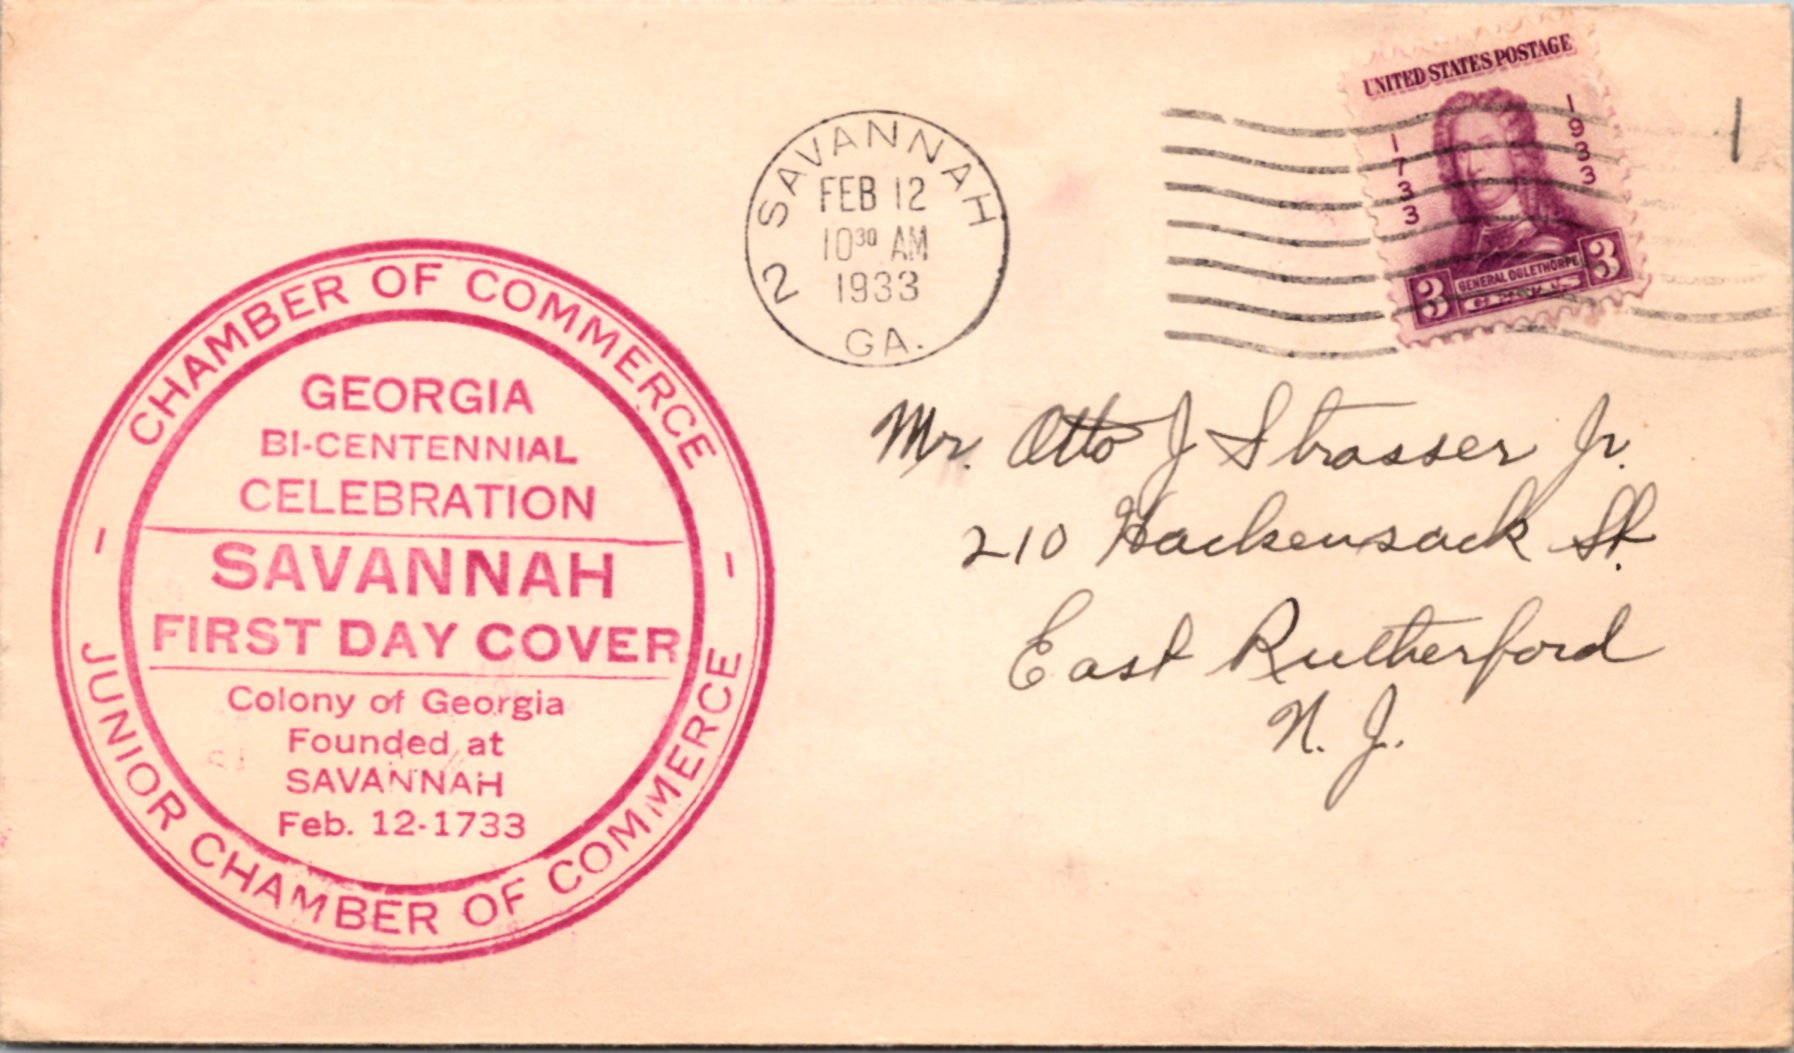 UNITED STATES POSTAGE
1733
1933
3
GENERAL OGLETHORPE
CENTS
3
SAVANNAH
FEB 12
10 30 AM
1933
2
GA.
CHAMBER OF COMMERCE
GEORGIA
BI-CENTENNIAL
CELEBRATION
SAVANNAH
FIRST DAY COVER
Colony of Georgia
Founded at
SAVANNAH
Feb. 12-1733
JUNIOR CHAMBER OF COMMERCE
Mr. Otto J Strasser Jr.
210 Hackensack St.
East Rutherford
N. J.